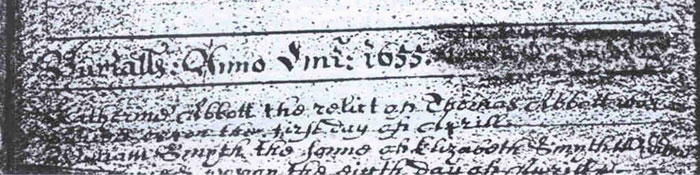 Burialls: Anno Dm̄i: 1655.
Katherine Abbott the relict of Thomas Abbott was
upon the first day of Aprill
William Smyth the sonne of Elizabeth Smyth Widdow
was upon the day of Aprill